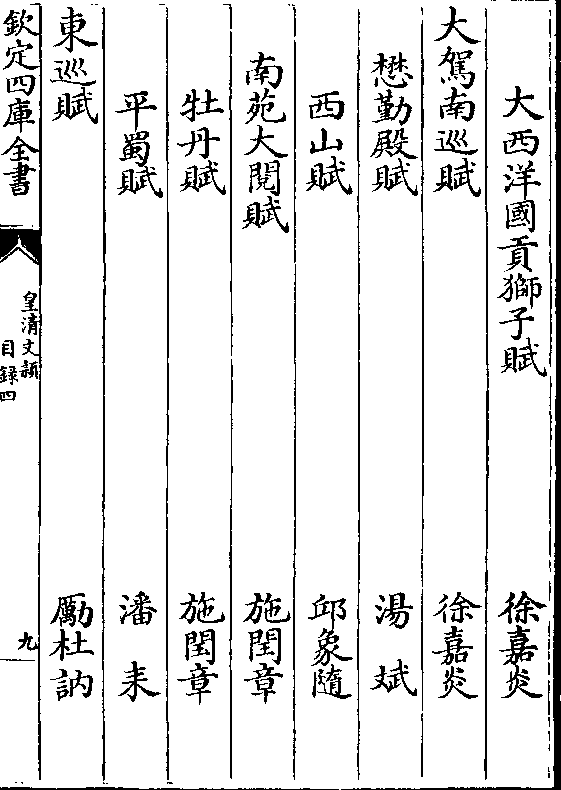 大西洋國貢獅子賦 徐嘉炎
大駕南巡賦 徐嘉炎
懋勤殿賦 湯斌
西山賦 邱象隨
南苑大閱賦 施閏章
牡丹賦 施閏章
平蜀賦 潘耒
東巡賦 勵杜訥
欽定四庫全書
皇清文頴
目録四
九